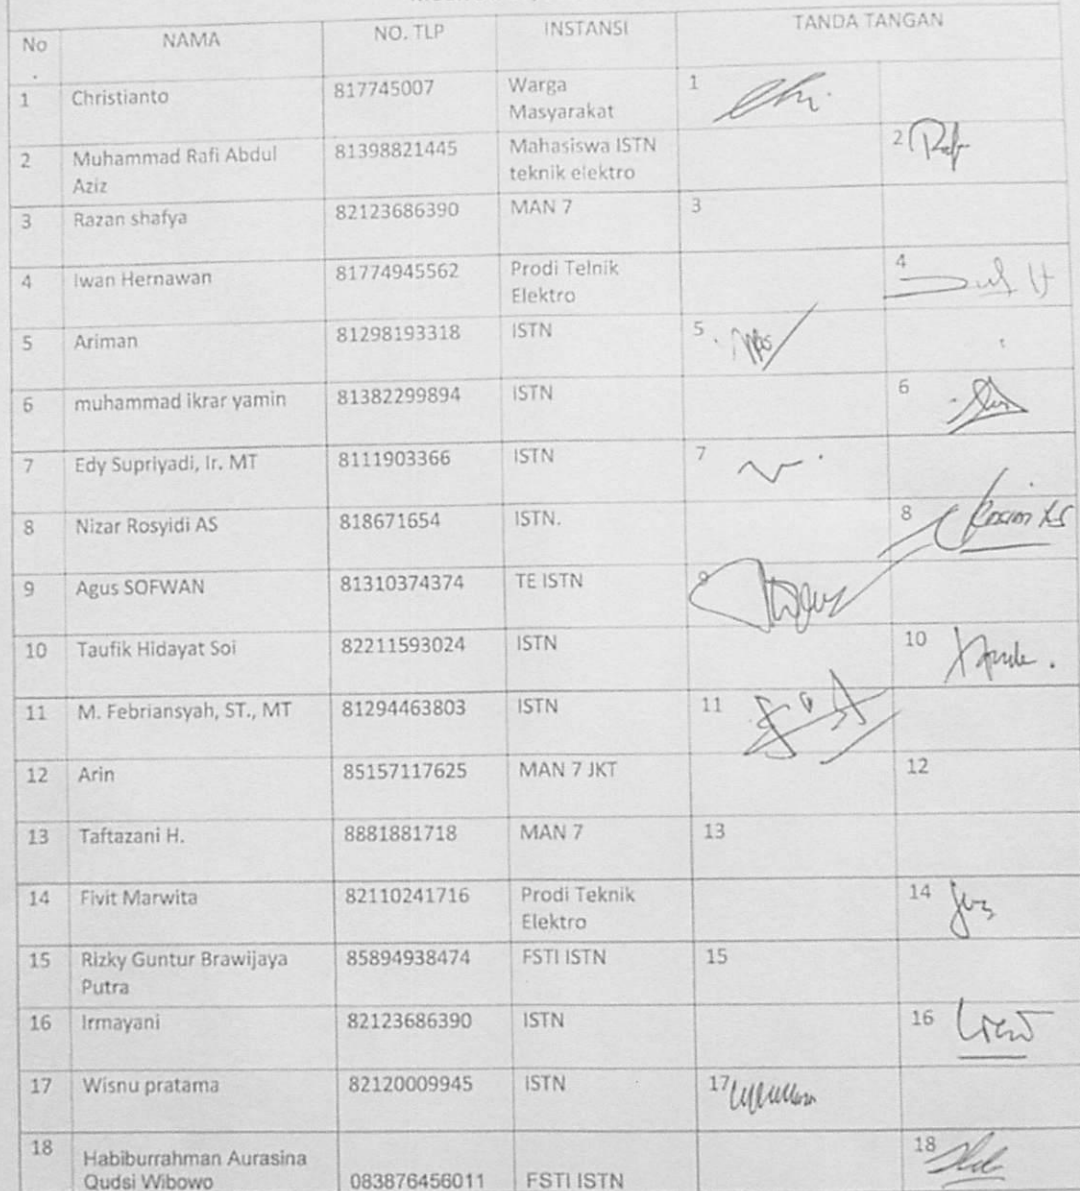 No NAMA NO. TLP INSTANSI TANDA TANGAN
.
1 Christianto 817745007 Warga 1
Masyarakat
2 Muhammad Rafi Abdul 81398821445 Mahasiswa ISTN 2
Aziz teknik elektro
3 Razan shafya 82123686390 MAN 7 3
4 Iwan Hernawan 81774945562 Prodi Telnik 4
Elektro
5 Ariman 81298193318 ISTN 5
6 muhammad ikrar yamin 81382299894 ISTN 6
7 Edy Supriyadi, Ir. MT 8111903366 ISTN 7
8 Nizar Rosyidi AS 818671654 ISTN. 8
9 Agus SOFWAN 81310374374 TE ISTN 9
10 Taufik Hidayat Soi 82211593024 ISTN 10
11 M. Febriansyah, ST., MT 81294463803 ISTN 11
12 Arin 85157117625 MAN 7 JKT 12
13 Taftazani H. 8881881718 MAN 7 13
14 Fivit Marwita 82110241716 Prodi Teknik 14
Elektro
15 Rizky Guntur Brawijaya 85894938474 FSTI ISTN 15
Putra
16 Irmayani 82123686390 ISTN 16
17 Wisnu pratama 82120009945 ISTN 17
18 Habiburrahman Aurasina 18
Qudsi Wibowo 083876456011 FSTI ISTN